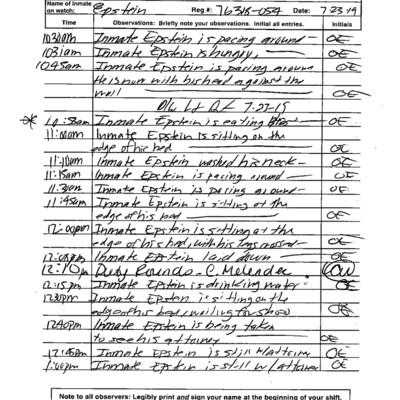 Name of Inmate on watch: Epstein Reg #: 76318-054 Date: 7-23-19
Time Observations: Briefly note your observations. Initial all entries. Initials
10:30am Inmate Epstein is pacing around OE
10:31am Inmate Epstein is hungry, OE
10:45am Inmate Epstein is pacing around OE
with his head against the
wall
7-27-19
* Inmate Epstein is eating OE
11:00am Inmate Epstein is sitting on the
edge of his bed OE
11:10am Inmate Epstein washed his neck OE
11:15am Inmate Epstein is pacing around OE
11:30am Inmate Epstein is pacing around OE
11:45am Inmate Epstein is sitting at the
edge of his bed OE
12:00pm Inmate Epstein is sitting at the
edge of his bed, with his legs crossed OE
Inmate Epstein laid down OE
12:10p Duty Rounds - C. Melendez
12:15pm Inmate Epstein is drinking water OE
1230pm Inmate Epstein is sitting on the
edge of his bed, waiting to OE
1240pm Inmate Epstein is being taken
to see his attorney OE
12:45pm Inmate Epstein is still w/attorney OE
1:00pm Inmate Epstein is still w/attorney OE
Note to all observers: Legibly print and sign your name at the beginning of your shift.